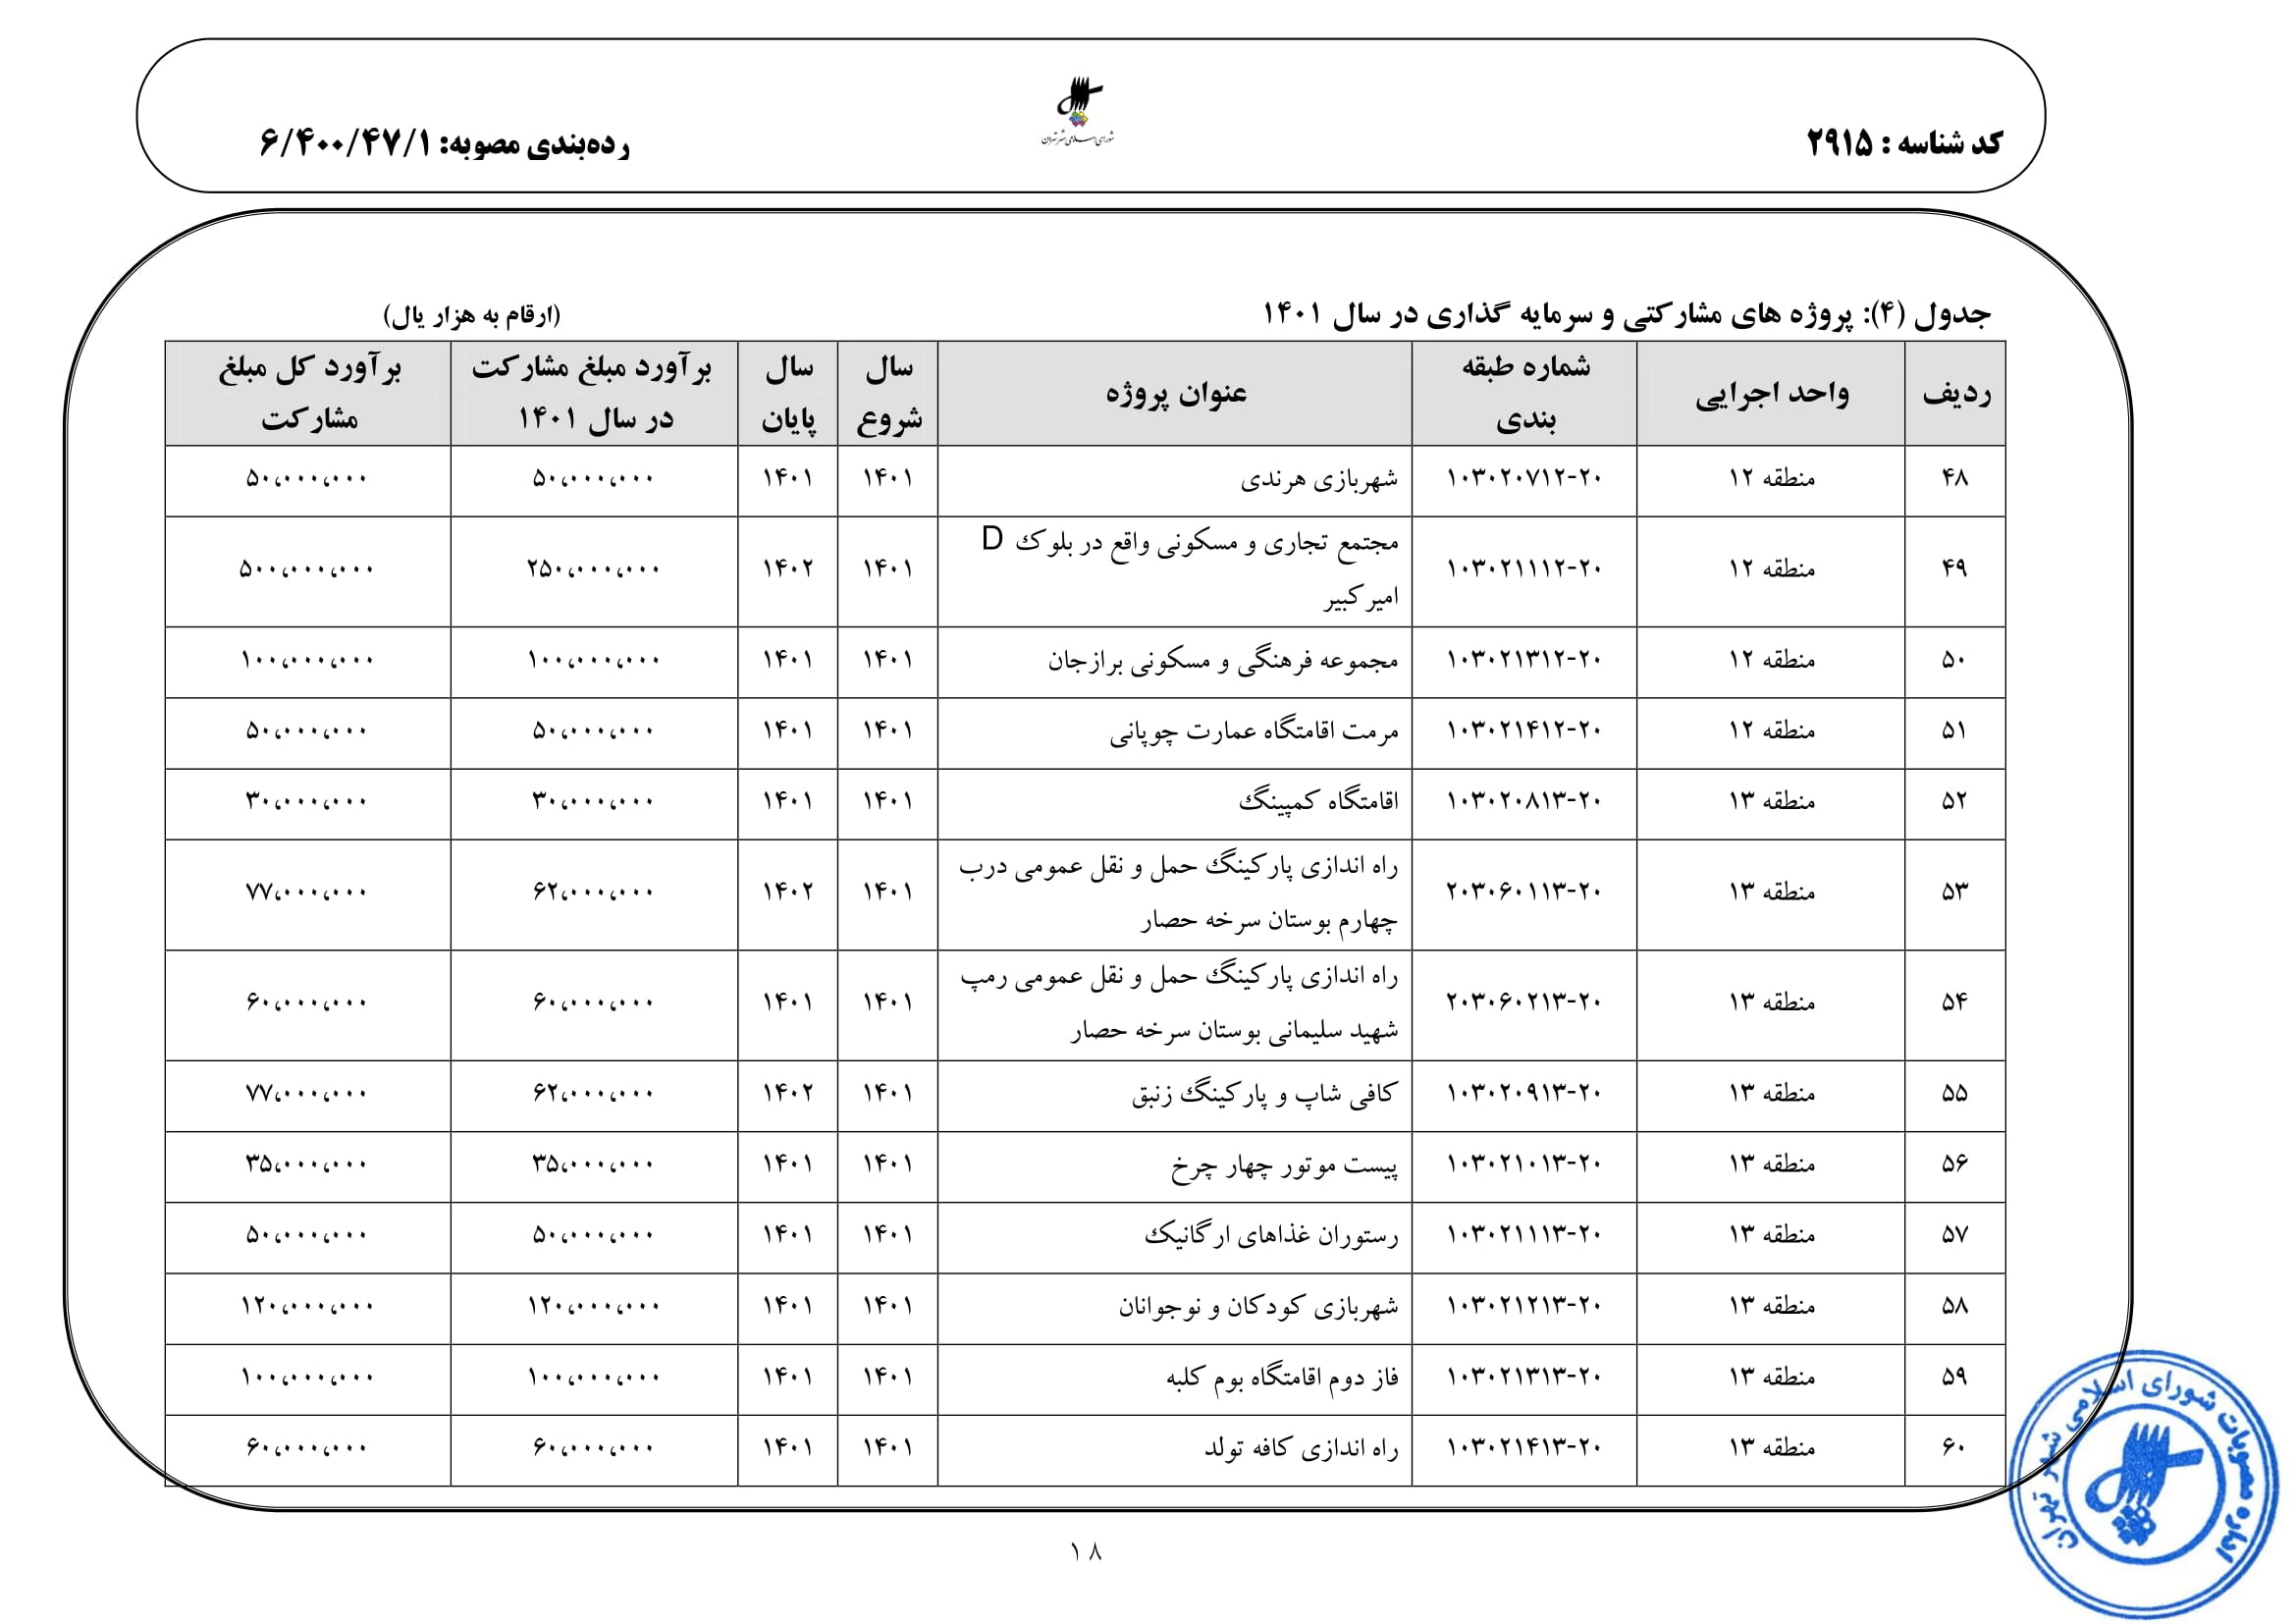 کد شناسه : ۲۹۱۵
شورای اسلامی شهر تهران
رده‌بندی مصوبه: ۶/۴۰۰/۴۷/۱
جدول (۴): پروژه های مشارکتی و سرمایه گذاری در سال ۱۴۰۱ (ارقام به هزار یال)
ردیف واحد اجرایی شماره طبقه بندی عنوان پروژه سال شروع سال پایان برآورد مبلغ مشارکت در سال ۱۴۰۱ برآورد کل مبلغ مشارکت
۴۸ منطقه ۱۲ ۱۰۳۰۲۰۷۱۲-۲۰ شهربازی هرندی ۱۴۰۱ ۱۴۰۱ ۵۰،۰۰۰،۰۰۰ ۵۰،۰۰۰،۰۰۰
۴۹ منطقه ۱۲ ۱۰۳۰۲۱۱۱۲-۲۰ مجتمع تجاری و مسکونی واقع در بلوک D
امیرکبیر ۱۴۰۱ ۱۴۰۲ ۲۵۰،۰۰۰،۰۰۰ ۵۰۰،۰۰۰،۰۰۰
۵۰ منطقه ۱۲ ۱۰۳۰۲۱۳۱۲-۲۰ مجموعه فرهنگی و مسکونی برازجان ۱۴۰۱ ۱۴۰۱ ۱۰۰،۰۰۰،۰۰۰ ۱۰۰،۰۰۰،۰۰۰
۵۱ منطقه ۱۲ ۱۰۳۰۲۱۴۱۲-۲۰ مرمت اقامتگاه عمارت چوپانی ۱۴۰۱ ۱۴۰۱ ۵۰،۰۰۰،۰۰۰ ۵۰،۰۰۰،۰۰۰
۵۲ منطقه ۱۳ ۱۰۳۰۲۰۸۱۳-۲۰ اقامتگاه کمپینگ ۱۴۰۱ ۱۴۰۱ ۳۰،۰۰۰،۰۰۰ ۳۰،۰۰۰،۰۰۰
۵۳ منطقه ۱۳ ۲۰۳۰۶۰۱۱۳-۲۰ راه اندازی پارکینگ حمل و نقل عمومی درب
چهارم بوستان سرخه حصار ۱۴۰۱ ۱۴۰۲ ۶۲،۰۰۰،۰۰۰ ۷۷،۰۰۰،۰۰۰
۵۴ منطقه ۱۳ ۲۰۳۰۶۰۲۱۳-۲۰ راه اندازی پارکینگ حمل و نقل عمومی رمپ
شهید سلیمانی بوستان سرخه حصار ۱۴۰۱ ۱۴۰۱ ۶۰،۰۰۰،۰۰۰ ۶۰،۰۰۰،۰۰۰
۵۵ منطقه ۱۳ ۱۰۳۰۲۰۹۱۳-۲۰ کافی شاپ و پارکینگ زنبق ۱۴۰۱ ۱۴۰۲ ۶۲،۰۰۰،۰۰۰ ۷۷،۰۰۰،۰۰۰
۵۶ منطقه ۱۳ ۱۰۳۰۲۱۰۱۳-۲۰ پیست موتور چهار چرخ ۱۴۰۱ ۱۴۰۱ ۳۵،۰۰۰،۰۰۰ ۳۵،۰۰۰،۰۰۰
۵۷ منطقه ۱۳ ۱۰۳۰۲۱۱۱۳-۲۰ رستوران غذاهای ارگانیک ۱۴۰۱ ۱۴۰۱ ۵۰،۰۰۰،۰۰۰ ۵۰،۰۰۰،۰۰۰
۵۸ منطقه ۱۳ ۱۰۳۰۲۱۲۱۳-۲۰ شهربازی کودکان و نوجوانان ۱۴۰۱ ۱۴۰۱ ۱۲۰،۰۰۰،۰۰۰ ۱۲۰،۰۰۰،۰۰۰
۵۹ منطقه ۱۳ ۱۰۳۰۲۱۳۱۳-۲۰ فاز دوم اقامتگاه بوم کلبه ۱۴۰۱ ۱۴۰۱ ۱۰۰،۰۰۰،۰۰۰ ۱۰۰،۰۰۰،۰۰۰
۶۰ منطقه ۱۳ ۱۰۳۰۲۱۴۱۳-۲۰ راه اندازی کافه تولد ۱۴۰۱ ۱۴۰۱ ۶۰،۰۰۰،۰۰۰ ۶۰،۰۰۰،۰۰۰
اداره مصوبات شورای اسلامی شهر تهران
۱۸